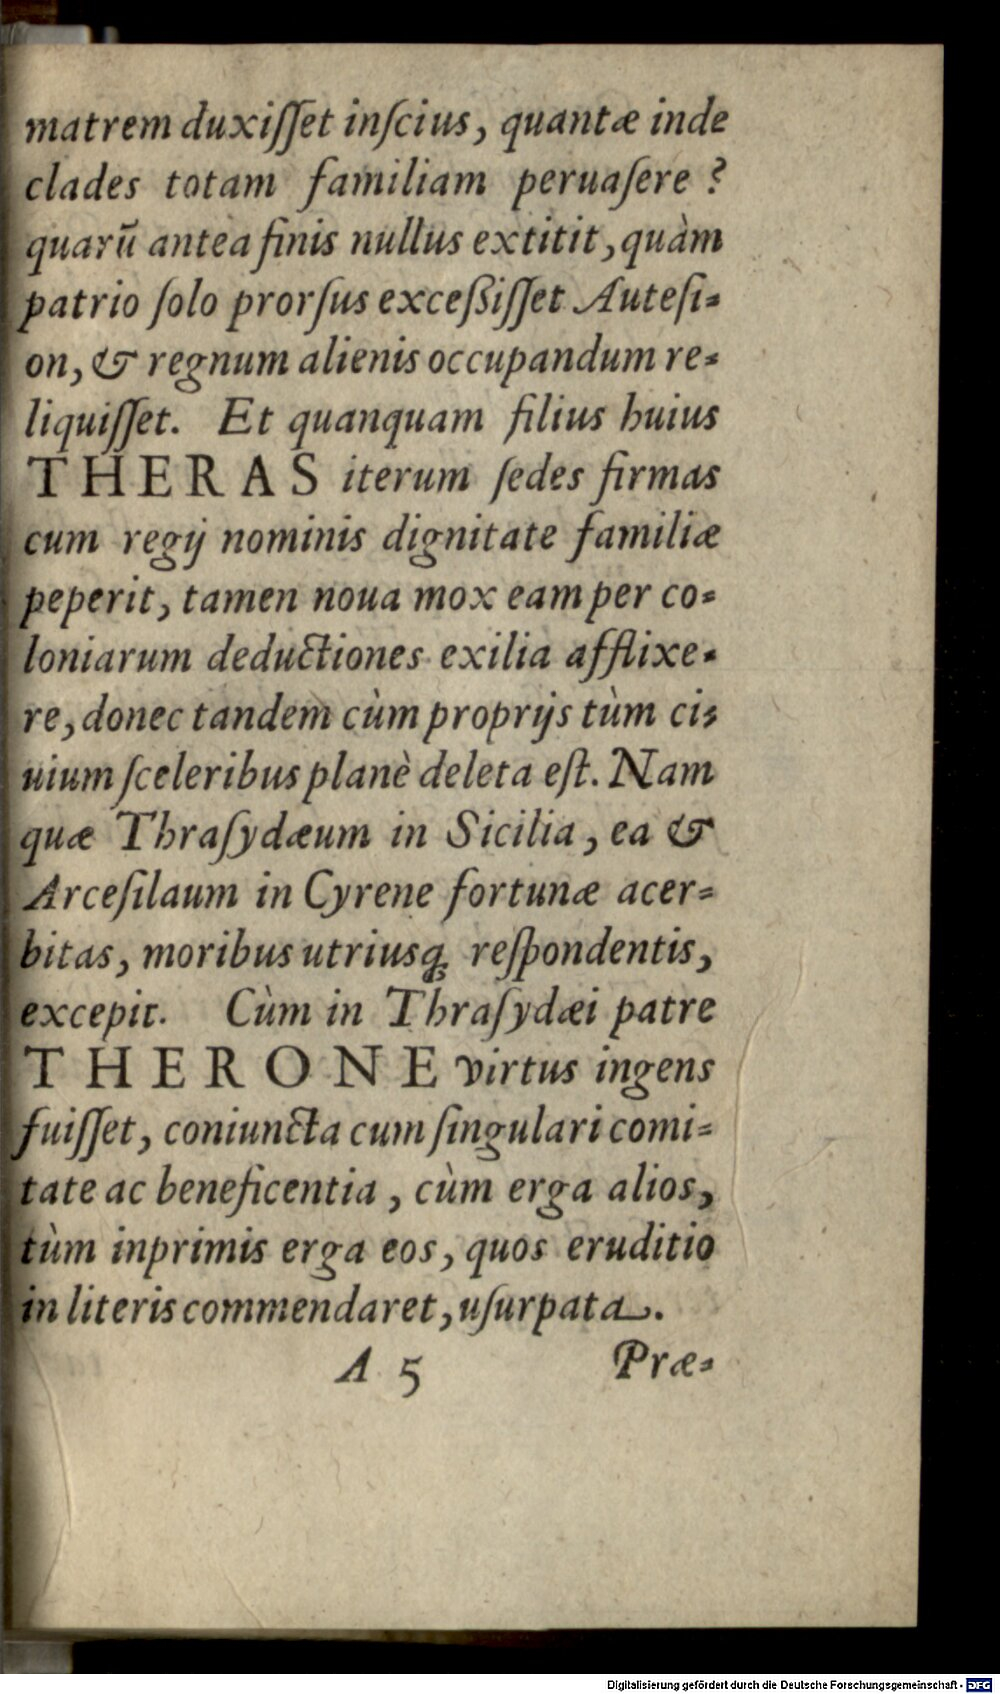 matrem duxiſſet inſcius, quantæ inde
clades totam familiam peruaſere ?
quarū antea finis nullus extitit, quàm
patrio ſolo prorſus exceßiſſet Auteſi-
on, & regnum alienis occupandum re-
liquiſſet. Et quanquam filius huius
THERAS iterum ſedes firmas
cum regij nominis dignitate familiæ
peperit, tamen noua mox eam per co-
loniarum deductiones exilia afflixe-
re, donec tandem cùm proprijs tùm ci-
uium ſceleribus planè deleta eſt. Nam
quæ Thraſydæum in Sicilia, ea &
Arceſilaum in Cyrene fortunæ acer-
bitas, moribus utriusq; reſpondentis,
excepit. Cùm in Thraſydæi patre
THERONE virtus ingens
fuiſſet, coniuncta cum ſingulari comi-
tate ac beneficentia, cùm erga alios,
tùm inprimis erga eos, quos eruditio
in literis commendaret, uſurpata.
A 5 Præ-
Digitalisierung gefördert durch die Deutsche Forschungsgemeinschaft - DFG